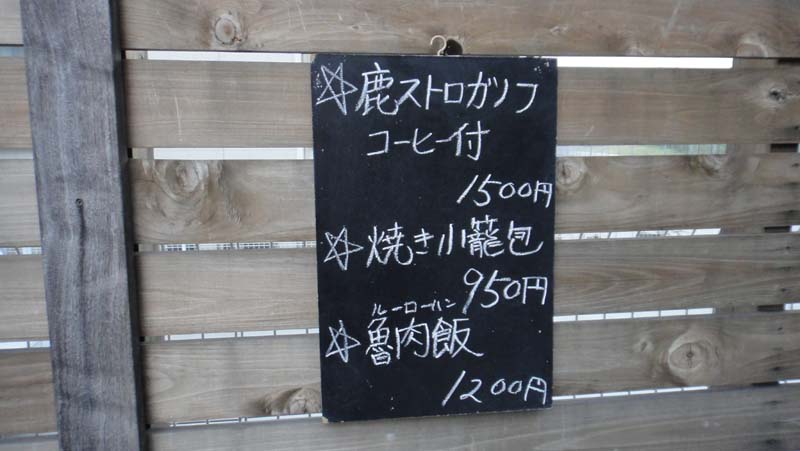 ☆鹿ストロガノフ
コーヒー付
1500円
☆焼き小籠包
950円
ルーローハン
☆魯肉飯
1200円